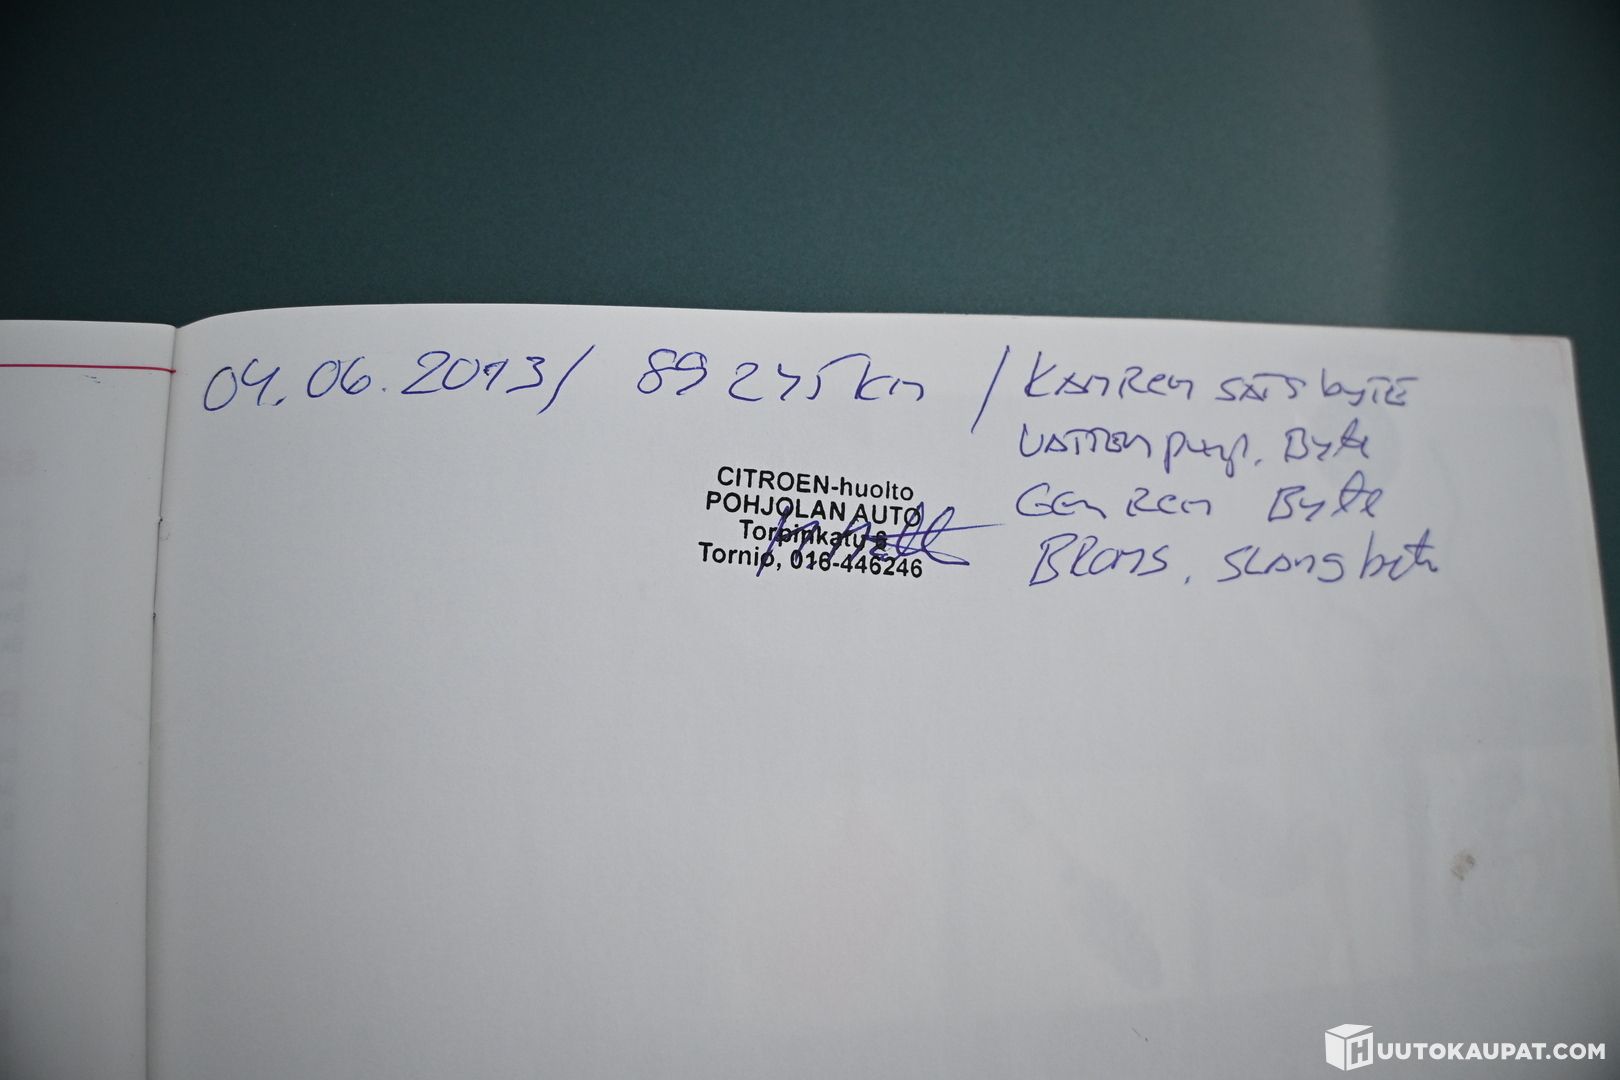 04.06.2013/ 89245km / KAMREM SATS bYTE
VATTEN pump. Byte
GEN REM Byte
BROMS. SLANG byte
CITROEN-huolto
POHJOLAN AUTO
Torpinkatu 6
Tornio, 016-446246
HUUTOKAUPAT.COM